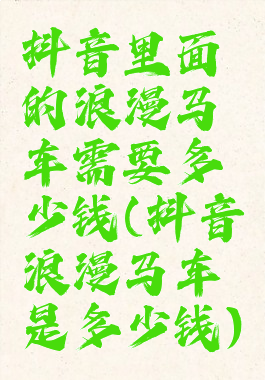 抖音里面
的浪漫马
车需要多
少钱(抖音
浪漫马车
是多少钱)